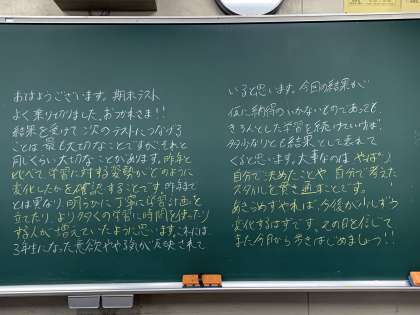 おはようございます。期末テスト
よく乗り切りました。おつかれさま!!
結果を受けて次のテストにつなげる
ことは最も大切なことですが、それと
同じくらい大切なことがあります。昨年と
比べて学習に対する姿勢がどのように
変化したかを確認することです。昨年まで
とは異なり、明らかに丁寧に学習計画を
立てたり、より多くの学習に時間を使ったり
する人が増えていたように思います。これは
3年生になった意欲ややる気が反映されて
いると思います。今回の結果が
仮に納得のいかないものであっても
きちんとした学習を続けていけば
多少なりとも結果として表れて
くると思います。大事なのは やっぱり
自分で決めたことや 自分で考えた
スタイルを貫き通すことです。
あきらめずやれば、今後が少しずつ
変化するはずです。その日を信じて
また今日から歩きはじめましょう!!